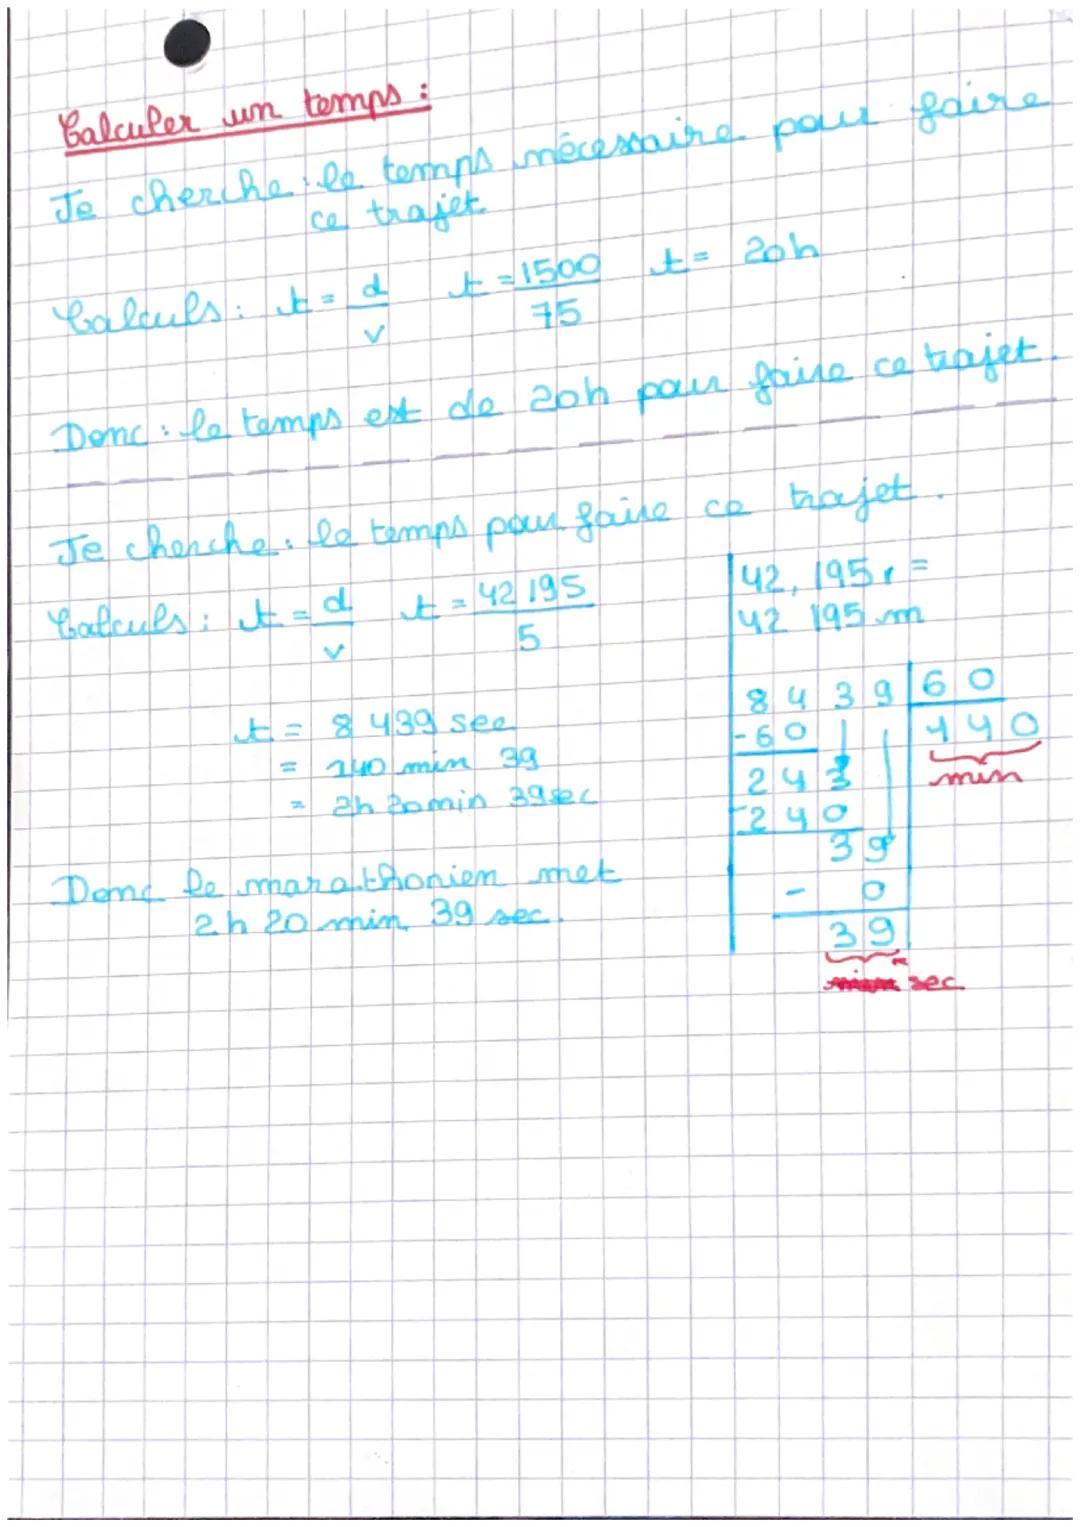 Calculer un temps :
Je cherche : le temps nécessaire pour faire
ce trajet
Calculs : t = d/v t = 1500/75 t = 20h
Donc : le temps est de 20h pour faire ce trajet.
Je cherche : le temps pour faire ce trajet.
Calculs : t = d/v t = 42 195/5
t = 8 439 sec
= 140 min 39
= 2h 20min 39sec
Donc le marathonien met
2h 20 min 39 sec.
42, 195 =
42 195 m
8 4 3 9 | 6 0
- 6 0 | 1 4 0
min
2 4 3
- 2 4 0
3 9
- 0
3 9
sec